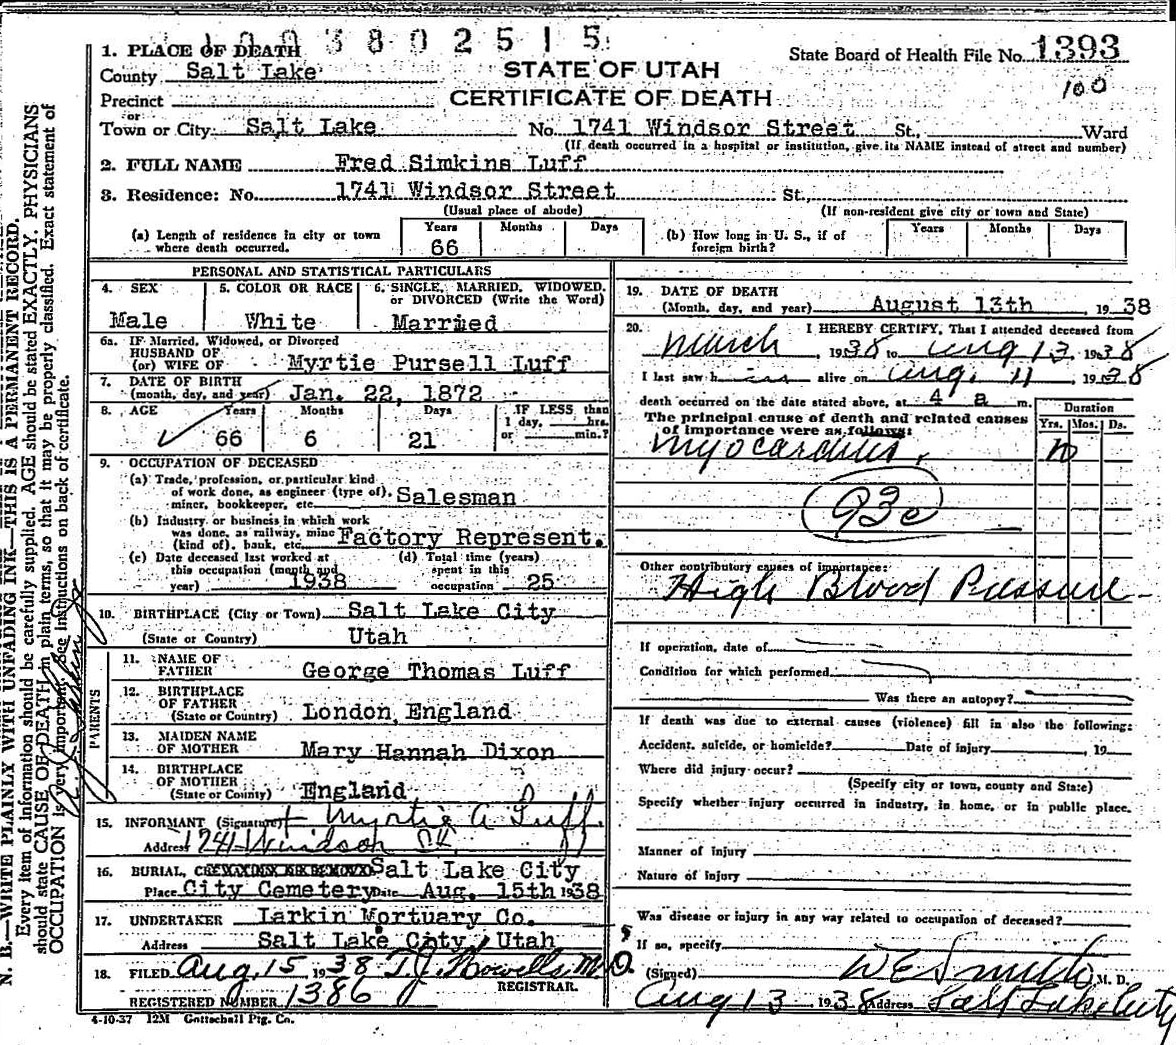 1003802515
1. PLACE OF DEATH
State Board of Health File No. 1393
County Salt Lake
STATE OF UTAH
100
Precinct
CERTIFICATE OF DEATH
or
Town or City Salt Lake No. 1741 Windsor Street St., Ward
(If death occurred in a hospital or institution, give its NAME instead of street and number)
2. FULL NAME Fred Simkins Luff
3. Residence: No. 1741 Windsor Street St.,
(Usual place of abode) (If non-resident give city or town and State)
(a) Length of residence in city or town where death occurred. Years 66 Months Days
(b) How long in U. S., if of foreign birth? Years Months Days
PERSONAL AND STATISTICAL PARTICULARS
4. SEX Male
5. COLOR OR RACE White
6. SINGLE, MARRIED, WIDOWED, or DIVORCED (Write the Word) Married
6a. IF Married, Widowed, or Divorced
HUSBAND OF
(or) WIFE OF Myrtie Pursell Luff
7. DATE OF BIRTH
(month, day, and year) Jan. 22, 1872
8. AGE Years 66 Months 6 Days 21 IF LESS than 1 day, hrs. or min.?
9. OCCUPATION OF DECEASED
(a) Trade, profession, or particular kind
of work done, as engineer (type of),
miner, bookkeeper, etc. Salesman
(b) Industry or business in which work
was done, as railway, mine
(kind of), bank, etc. Factory Represent.
(c) Date deceased last worked at
this occupation (month and
year) 1938
(d) Total time (years)
spent in this
occupation 25
10. BIRTHPLACE (City or Town) Salt Lake City
(State or Country) Utah
PARENTS
11. NAME OF FATHER George Thomas Luff
12. BIRTHPLACE OF FATHER
(State or Country) London, England
13. MAIDEN NAME OF MOTHER Mary Hannah Dixon
14. BIRTHPLACE OF MOTHER
(State or County) England
15. INFORMANT (Signature) Myrtie A Luff.
Address 1741 Windsor St.
16. BURIAL, Salt Lake City
Place City Cemetery Date Aug. 15th 1938
17. UNDERTAKER Larkin Mortuary Co.
Address Salt Lake City, Utah
18. FILED Aug. 15 1938 T.J. Howells M.D.
REGISTRAR.
REGISTERED NUMBER 1386
4-10-37 12M Gottschall Ptg. Co.
19. DATE OF DEATH
(Month, day, and year) August 13th 1938
20. I HEREBY CERTIFY, That I attended deceased from
March, 1938 to Aug 13, 1938
I last saw him alive on Aug. 11, 1938
death occurred on the date stated above, at 4 a m.
The principal cause of death and related causes
of importance were as follows:
Duration
Yrs. Mos. Ds.
Myocarditis.
93c
Other contributory causes of importance:
High Blood Pressure
If operation, date of
Condition for which performed
Was there an autopsy?
If death was due to external causes (violence) fill in also the following:
Accident, suicide, or homicide? Date of injury , 19
Where did injury occur?
(Specify city or town, county and State)
Specify whether injury occurred in industry, in home, or in public place.
Manner of injury
Nature of injury
Was disease or injury in any way related to occupation of deceased?
If so, specify
(Signed) W E Smith M. D.
Aug 13, 1938 Address Salt Lake City
N. B.—WRITE PLAINLY WITH UNFADING INK—THIS IS A PERMANENT RECORD.
Every item of information should be carefully supplied. AGE should be stated EXACTLY. PHYSICIANS
should state CAUSE OF DEATH in plain terms, so that it may be properly classified. Exact statement of
OCCUPATION is very important. See instructions on back of certificate.